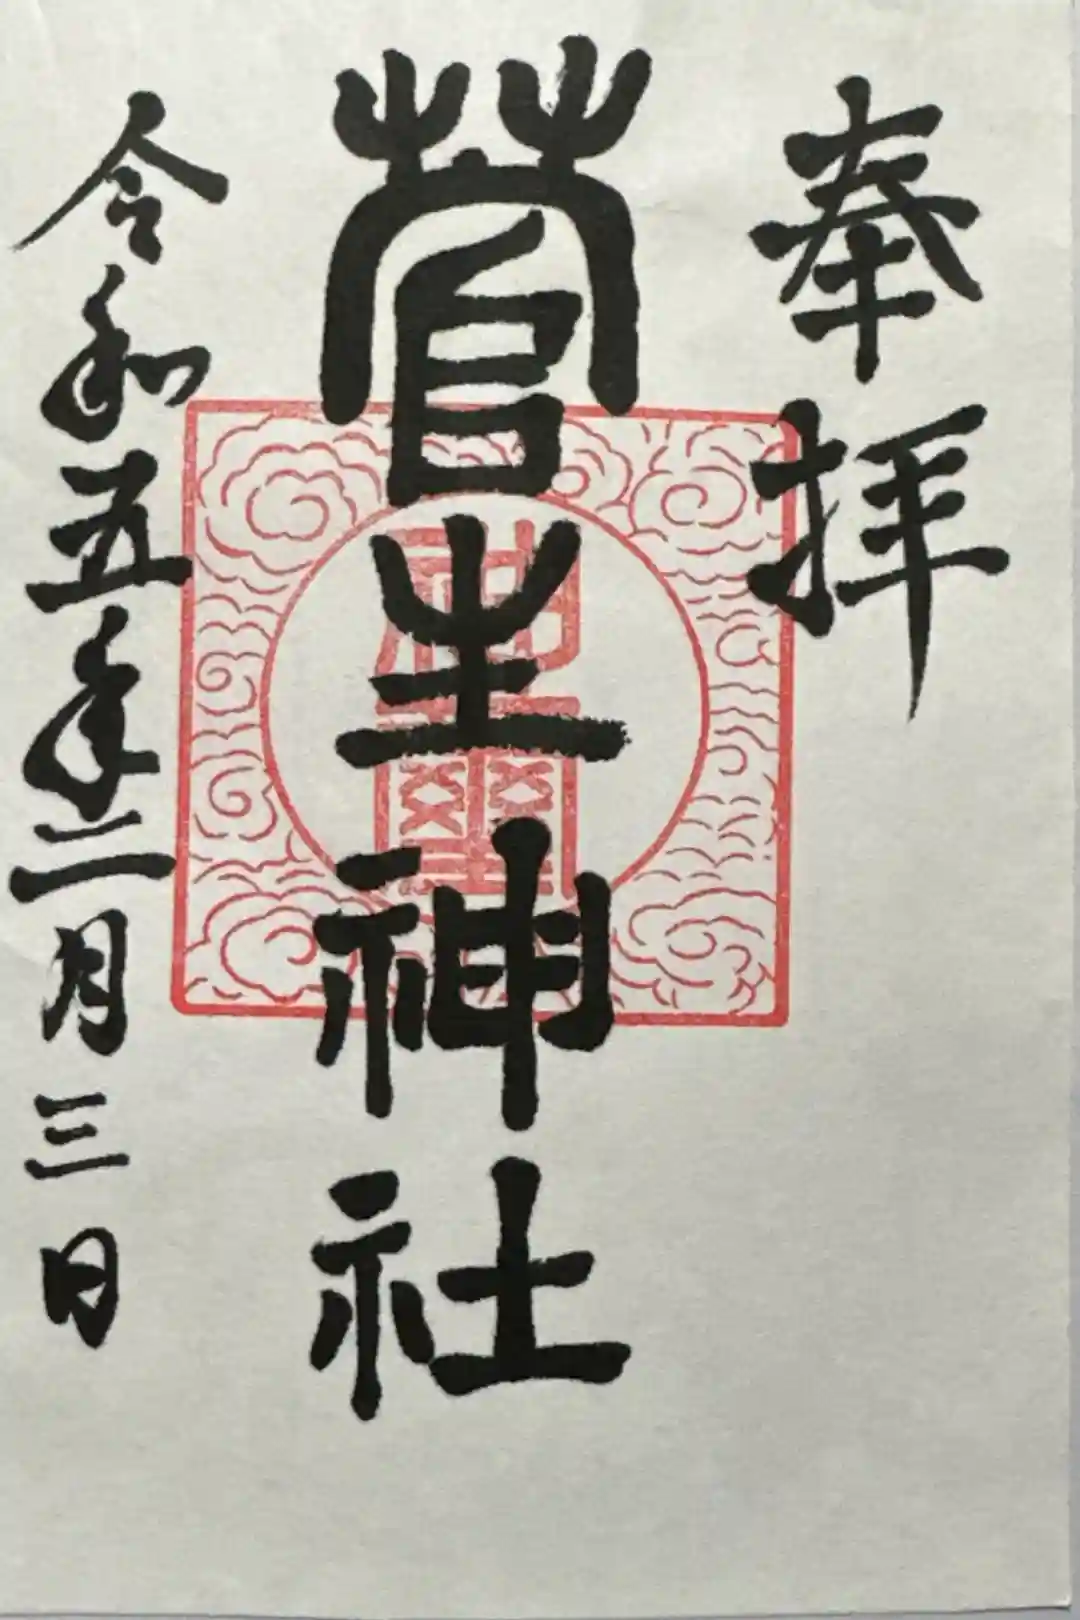 奉拝
菅生神社
令和五年二月三日